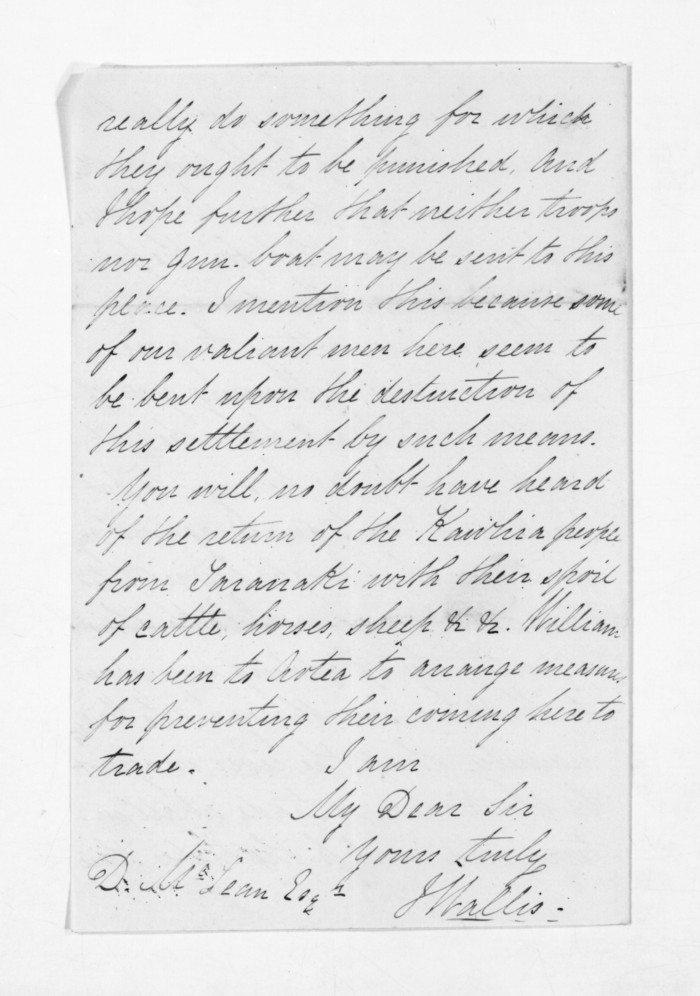 really do something for which
they ought to be punished. And
I hope further that neither troops
nor gun-boat may be sent to this
place. I mention this because some
of our valiant men here seem to
be bent upon the destruction of
this settlement by such means.
You will, no doubt have heard
of the return of the Kawhia people
from Taranaki with their spoil
of cattle, horses, sheep &c &c. William
has been to Aotea to arrange measures
for preventing their coming here to
trade. I am
My Dear Sir
Yours truly
D. McLean Esqr
J Wallis.